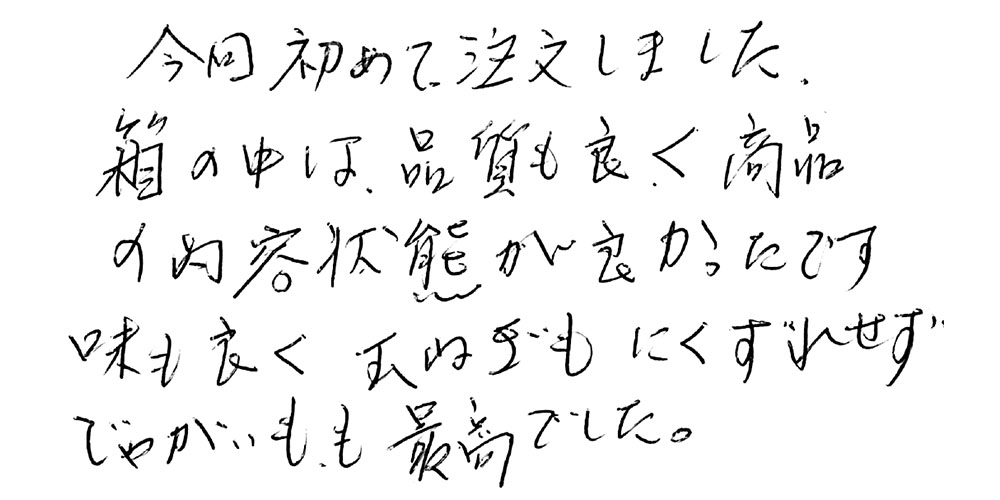 今回初めて、注文しました、
箱の中は、品質も良く商品
の内容状態が良かったです
味も良く 玉ねぎも にくずれせず
じゃがいも、も 最高でした。